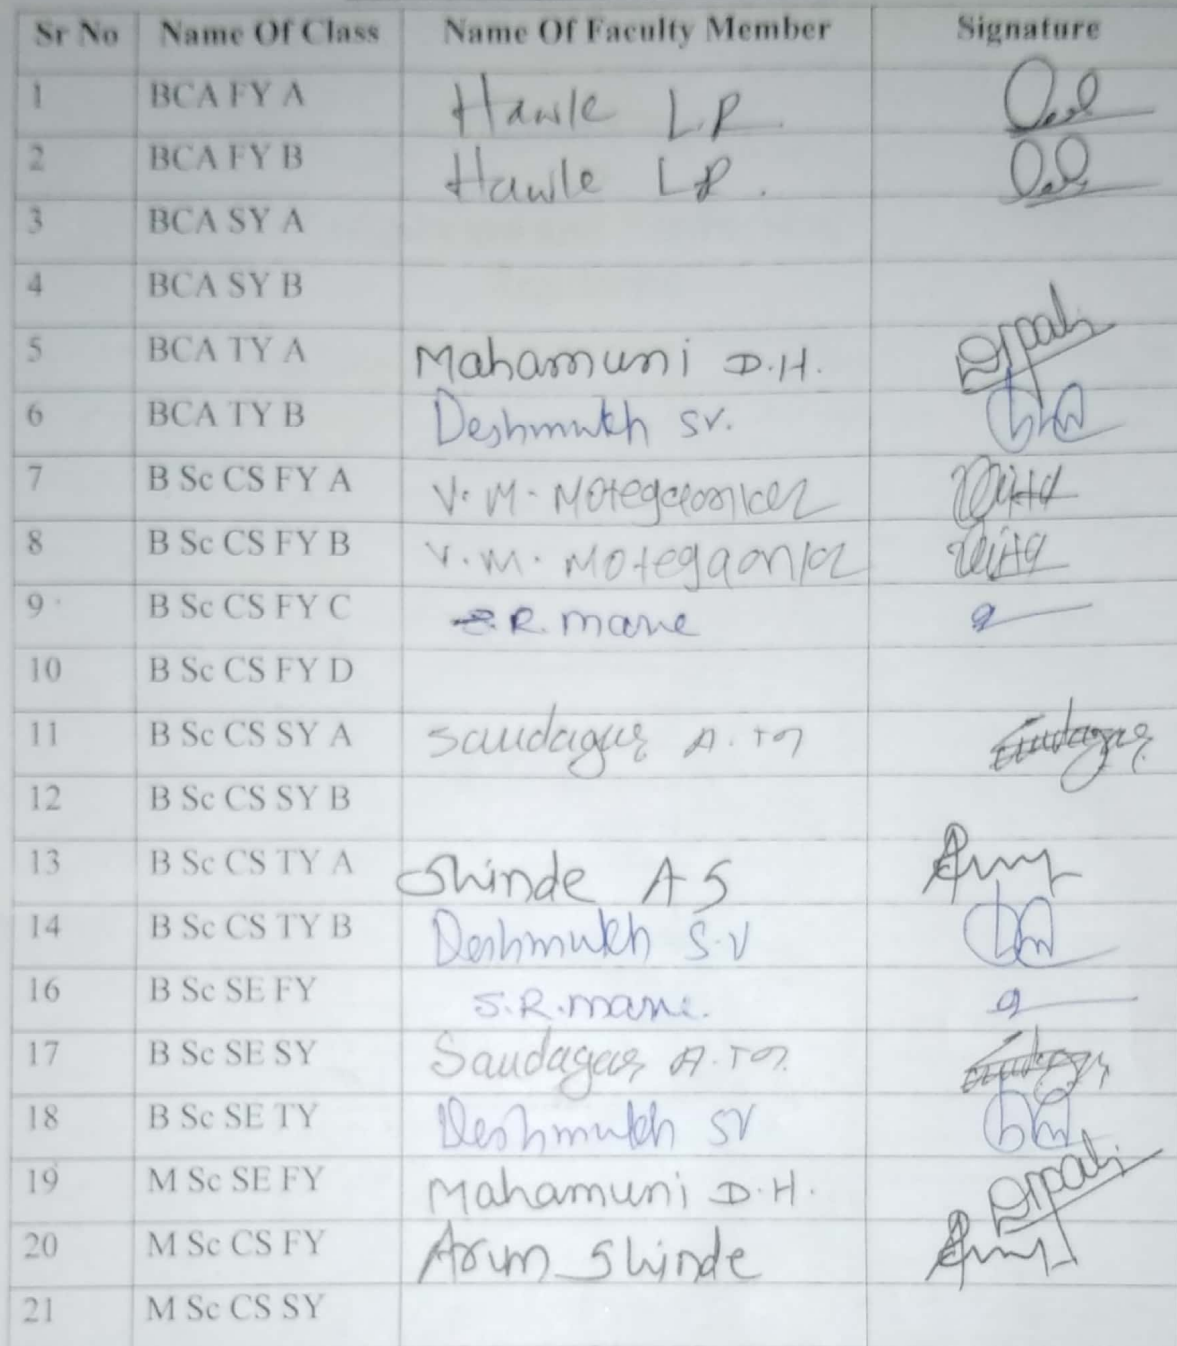 Sr No Name Of Class Name Of Faculty Member Signature
1 BCA FY A Hawle L.P.
2 BCA FY B Hawle LP.
3 BCA SY A
4 BCA SY B
5 BCA TY A Mahamuni D.H.
6 BCA TY B Deshmukh SV.
7 B Sc CS FY A V. M. Motegaonker
8 B Sc CS FY B V. M. Motegaonkr
9 B Sc CS FY C R. mane
10 B Sc CS FY D
11 B Sc CS SY A Saudagar A.
12 B Sc CS SY B
13 B Sc CS TY A Shinde A S
14 B Sc CS TY B Deshmukh S.V
16 B Sc SE FY S.R.mane.
17 B Sc SE SY Saudagar A.
18 B Sc SE TY Deshmukh SV
19 M Sc SE FY Mahamuni D.H.
20 M Sc CS FY Arun Shinde
21 M Sc CS SY